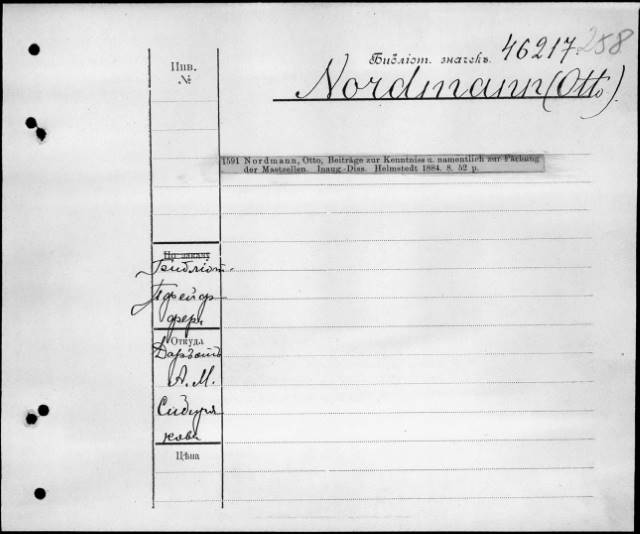 46217 258
Инв.
№
Библіот. значекъ
Nordmann (Otto).
1591 Nordmann, Otto, Beiträge zur Kenntniss u. namentlich zur Färbung
der Mastzellen. Inaug.-Diss. Helmstedt 1884. 8. 52 p.
По заказу
Библіот.
Пфейф-
фера
Откуда
Даръ отъ
А. М.
Сибиря
кова
Цѣна